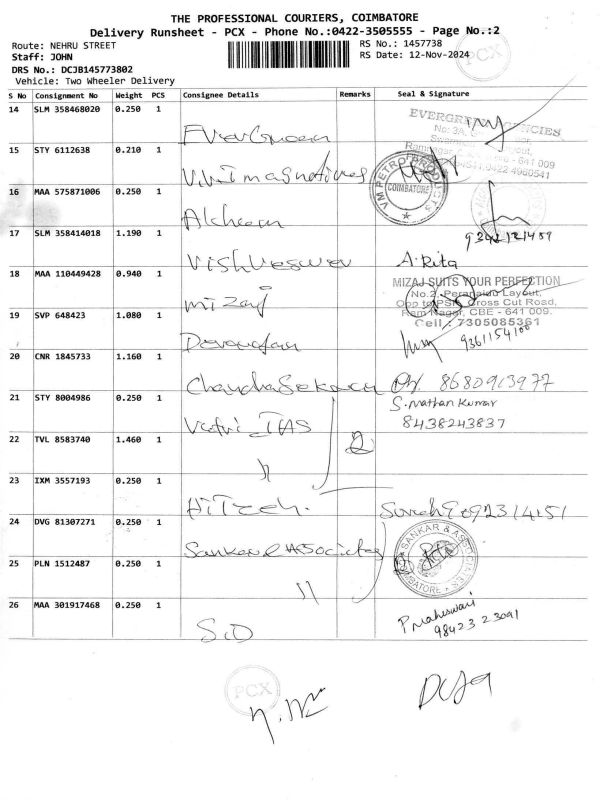 THE PROFESSIONAL COURIERS, COIMBATORE
Delivery Runsheet - PCX - Phone No.:0422-3505555 - Page No.:2
Route: NEHRU STREET
RS No.: 1457738
Staff: JOHN
RS Date: 12-Nov-2024
PCX
DRS No.: DCJB145773802
Vehicle: Two Wheeler Delivery
S No Consignment No Weight PCS Consignee Details Remarks Seal & Signature
14 SLM 358468020 0.250 1 Evergreen
EVERGREEN AGENCIES
No: 3A,
Ramnagar, - 641 009
0422 4960541
15 STY 6112638 0.210 1 V.V.Imaginatives
VM PETRO PRODUCTS
COIMBATORE
16 MAA 575871006 0.250 1
17 SLM 358414018 1.190 1 Vishveswer A. Rita
18 MAA 110449428 0.940 1 mizaj
MIZAJ SUITS YOUR PERFECTION
No.2, Peranaidu Layout,
Opp to PSR, Cross Cut Road,
Ram Nagar, CBE - 641 009.
Cell : 7305085361
19 SVP 648423 1.080 1 9361154100
20 CNR 1845733 1.160 1 ChandraSekaran Ph. 8680913977
21 STY 8004986 0.250 1 Vetri IAS
S. Mathan Kumar
8438243837
22 TVL 8583740 1.460 1 "
23 IXM 3557193 0.250 1 HiTech. Suresh 9092314151
24 DVG 81307271 0.250 1 Sankar & Associates
SANKAR & ASSOCIATES
COIMBATORE
25 PLN 1512487 0.250 1 "
26 MAA 301917468 0.250 1 SiD
P. Maheswari
98423 23091
PCX